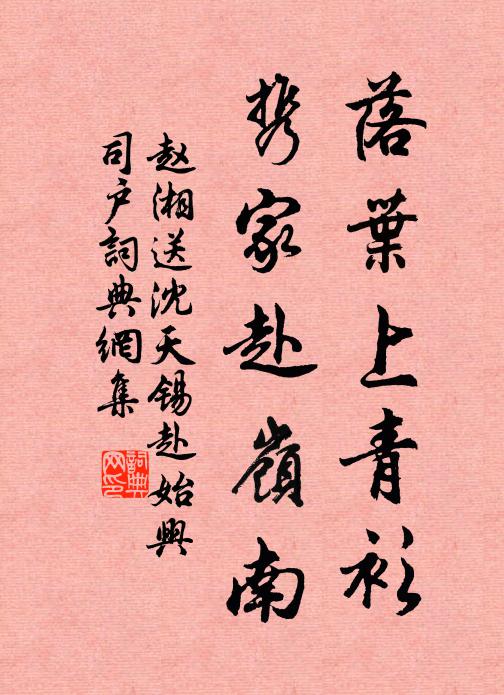 落葉上青衫
携家赴嶺南
赵湘送沈天锡赴始興
司户詞典網集
詞典網印